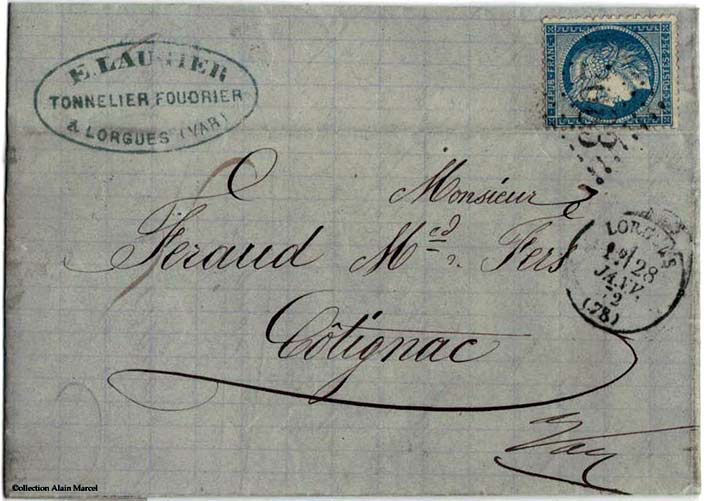 E. LAUGIER
TONNELIER FOUDRIER
A LORGUES (VAR)
REPUB. FRANC.
POSTES 25 C
Monsieur
Feraud Md. Fers
Cotignac
Var
LORGUES
28
JANV.
72
(78)
©ollection Alain Marcel